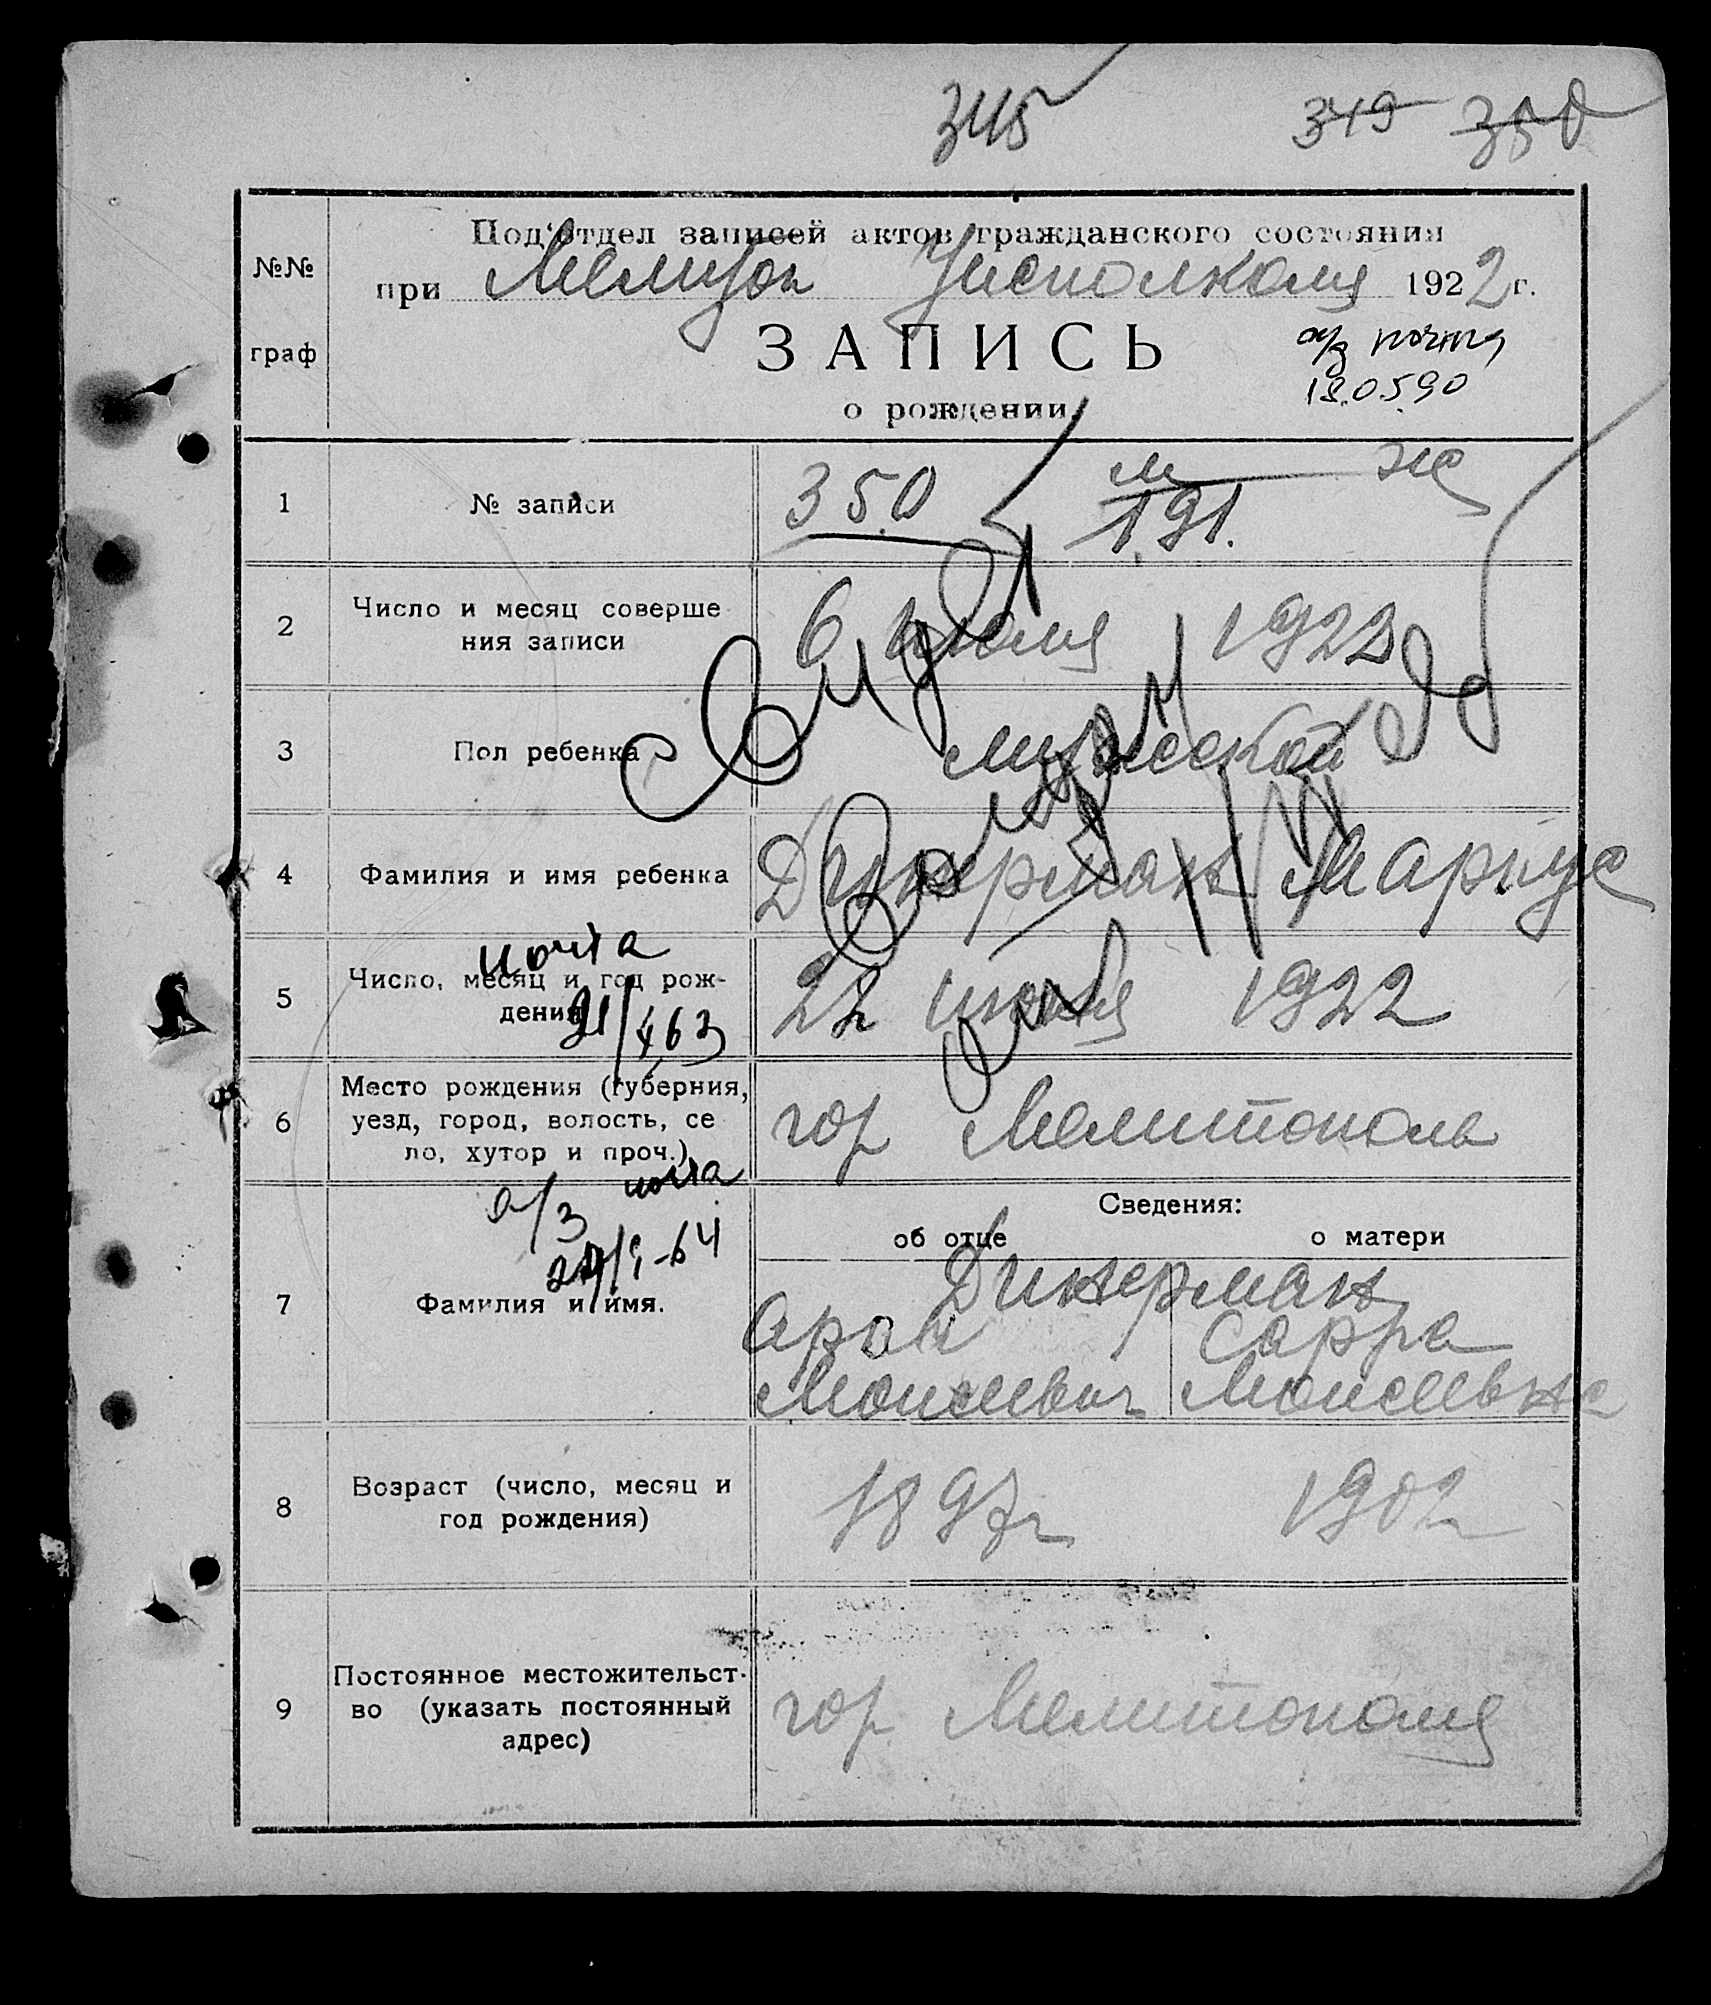 345 349 350
Под'отдел записей актов гражданского состояния
№№
при Мелитоп Уисполкома 1922 г.
граф
ЗАПИСЬ
о рождении.
а/з почта
18.05.90
1 № записи 350 м 191. ж
2 Число и месяц соверше
ния записи
6 июля 1922
3 Пол ребенка мужской
4 Фамилия и имя ребенка Динерман Маркус
почта
5 Число, месяц и год рож-
дения
22 июня 1922
6 Место рождения (губерния,
уезд, город, волость, се
ло, хутор и проч.)
гор Мелитополь
а/з почта
Сведения:
об отце о матери
7 Фамилия и имя.
Динерман
Арон Сарра
Моисеевич Моисеевна
8 Возраст (число, месяц и
год рождения)
1897г 1902
9 Постоянное местожительст-
во (указать постоянный
адрес)
гор Мелитополя